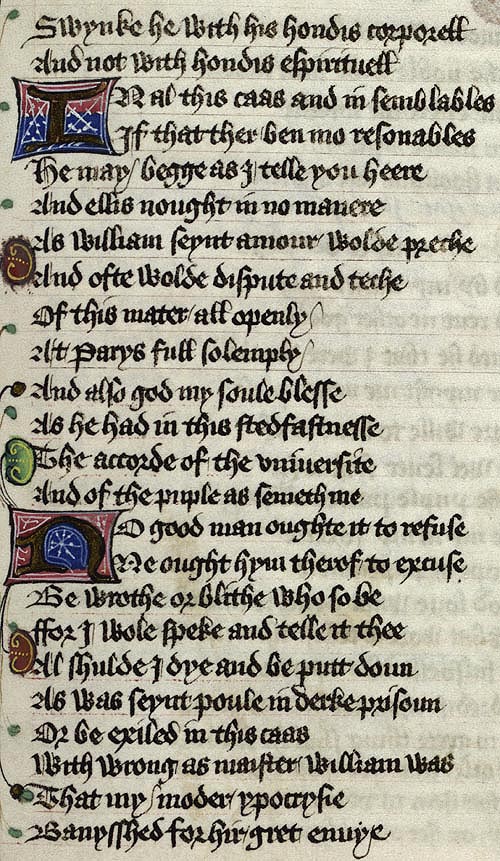 Swynke he with his hondis corporell
And not with hondis espirituell
In al this caas and in semblables
If that ther ben mo resonables
He may begge as I telle you heere
And ellis nought in no manere
As William seynt amour wolde preche
And ofte wolde dispute and teche
Of this mater all openly
At Parys full solemply
And also god my soule blesse
As he had in this stedfastnesse
The accorde of the vniuersite
And of the puple as semeth me
No good man oughte it to refuse
Ne ought hym therof to excuse
Be wrothe or blithe who so be
ffor I wole speke and telle it thee
Al shulde I dye and be putt doun
As was seynt poule in derke prisoun
Or be exiled in this caas
With wrong as maister William was
That my moder ypocrysie
Banysshed for hir gret enuye